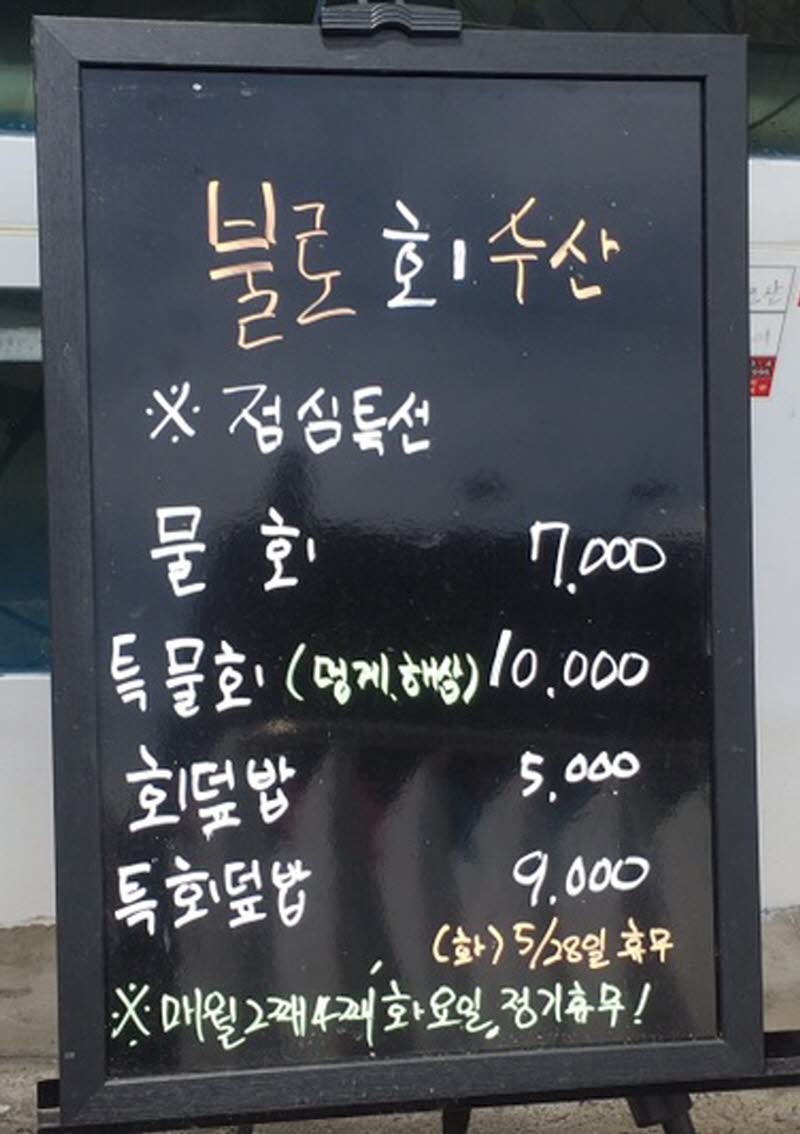 불로 회 수산
※ 점심특선
물 회 7,000
특물회 (멍게, 해삼) 10,000
회덮밥 5,000
특회덮밥 9,000
(화) 5/28일 휴무
※ 매월 2째 4째 화요일, 정기휴무!